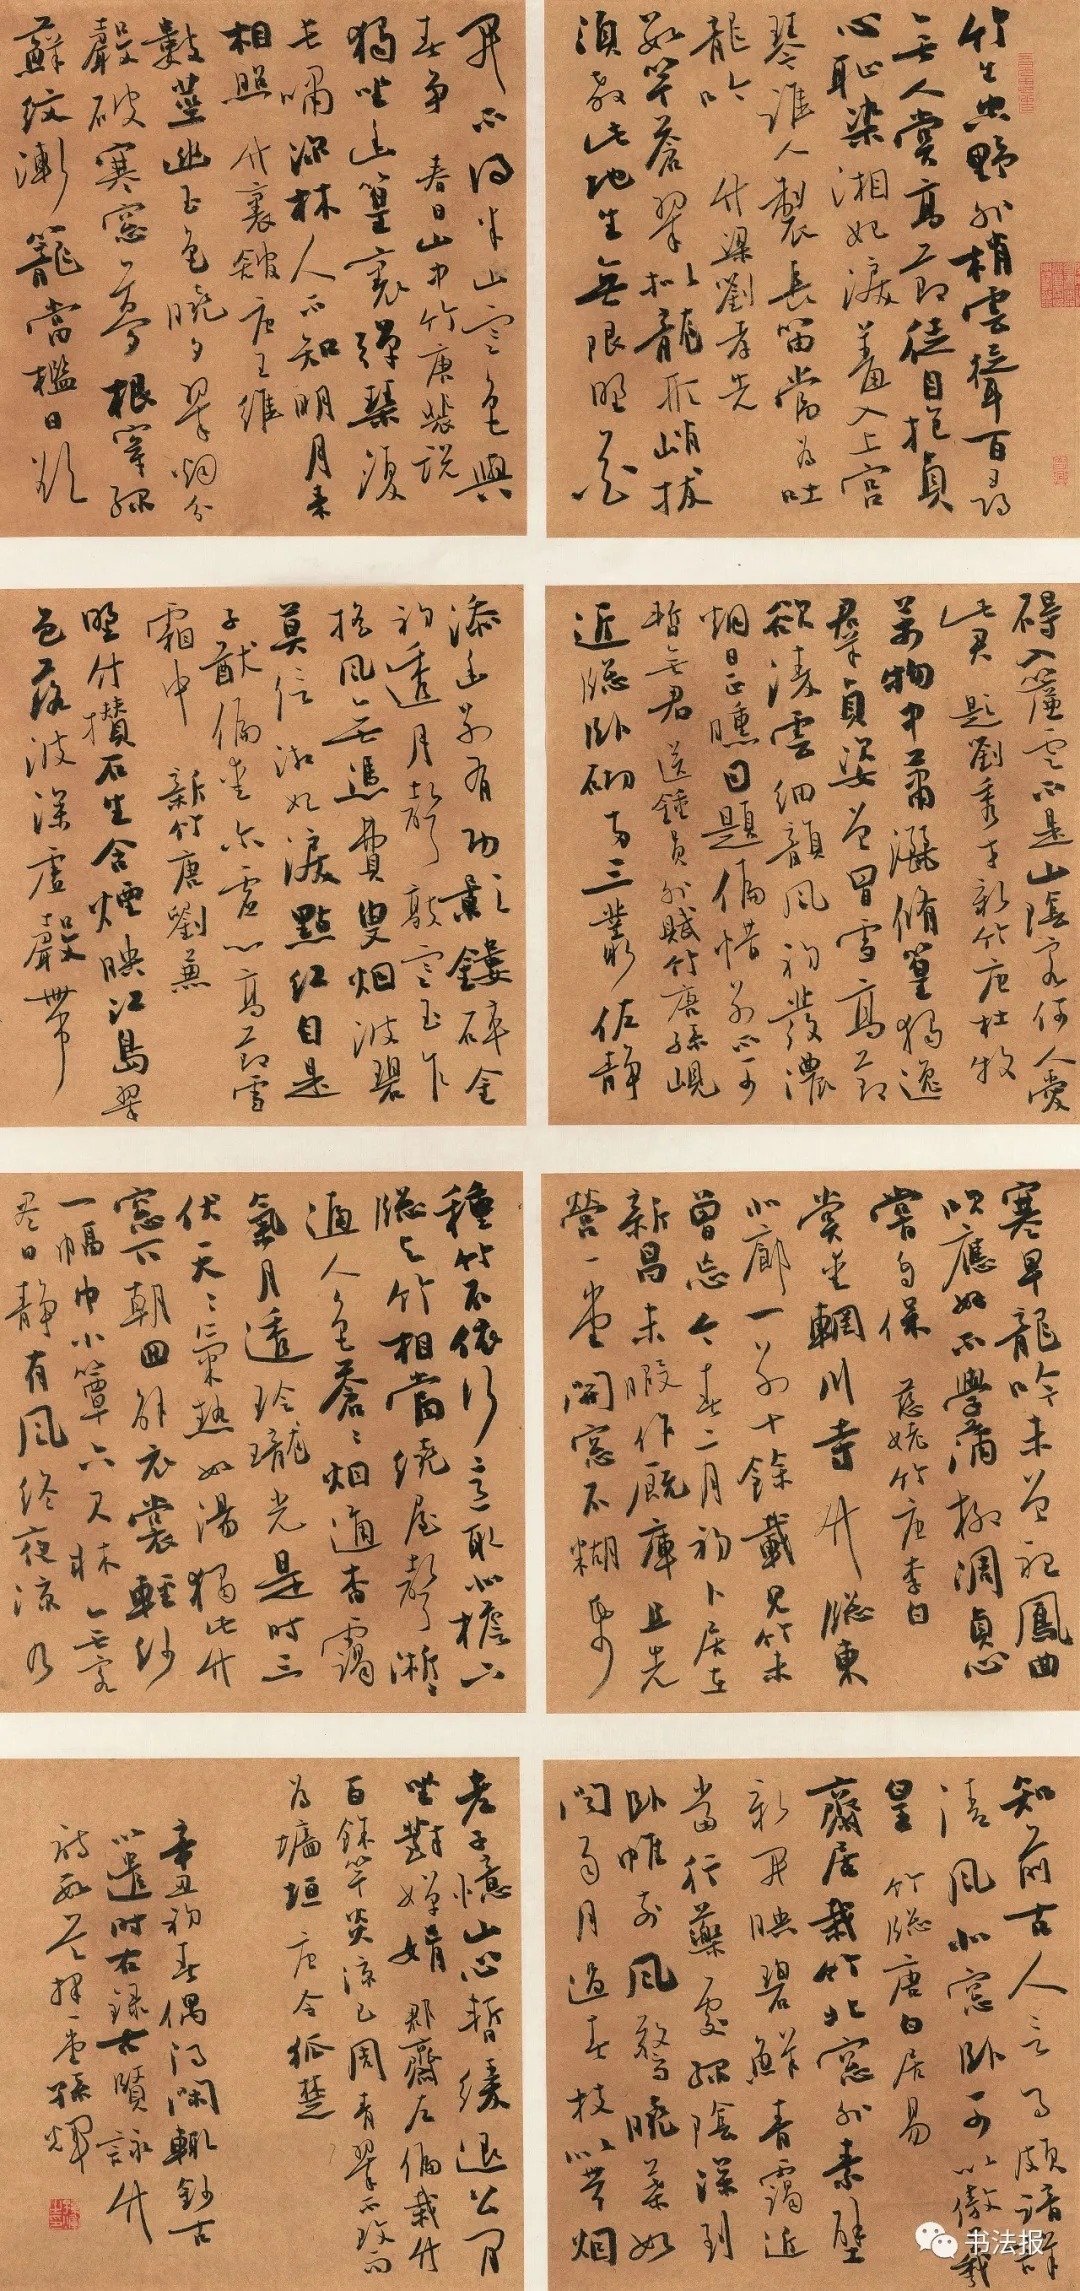 竹生空野外梢雲聳百尋
無人賞高節徒自抱貞
心恥染湘妃淚羞入上宮
琴誰人製長笛當為吐
龍吟 竹梁劉孝先
數竿蒼翠擬龍形峭拔
須教此地生無限野花
開不得半山寒色與
春爭 春日山中竹唐裴説
獨坐幽篁裏彈琴復
長嘯深林人不知明月來
相照 竹裏館唐王維
數莖幽玉色曉夕翠烟分
聲破寒窓夢根穿綠
蘚紋漸籠當檻日欲
礙入簾雲不是山陰客何人愛
此君 題劉秀才新竹唐杜牧
萬物中蕭灑脩篁獨逸
群貞姿曾冒雪高節
欲凌雲細韻風初發濃
烟日正曛因題偏惜別不可
暫無君 送鍾員外賦竹唐孫峴
近窗臥砌兩三叢佐靜
添幽別有功影鏤碎金
初透月聲敲寒玉乍
搖風無憑費叟烟波碧
莫信湘妃淚點紅自是
子猷偏愛爾虛心高節雪
霜中 新竹唐劉兼
野竹攢石生含煙映江島翠
色落波深虛聲帶
寒早龍吟未曾聽鳳曲
吹應好不學蒲柳凋貞心
嘗自保 慈姥竹唐李白
嘗愛輞川寺竹窗東
北廊一別十餘載見竹未
曾忘今春二月初卜居在
新昌未暇作廄庫且先
營一堂開窓不糊紙
種竹不依行意取北檐下
窗與竹相當繞屋聲淅淅
逼人色蒼蒼烟通杳靄
氣月透玲瓏光是時三
伏天天氣熱如湯獨此竹
窓下朝回解衣裳輕紗
一幅巾小簟六尺牀無客
盡日靜有風終夜涼乃
知前古人言事頗諳詳
清風北窓臥可以傲羲
皇 竹窗唐白居易
齋居栽竹北窓外素壁
新開映碧鮮青靄近
當行藥處綠陰深到
臥帷前風驚曉葉如
聞雨月過春枝似帶烟
老子憶山心暫緩退公閒
坐對嬋娟 郡齋左偏栽竹
百餘竿炎涼已周青翠不改而
為墻垣 唐令狐楚
辛丑初春偶得閑輒鈔古
以遣時右錄古賢詠竹
詩數首擇一堂孫輝
书法报